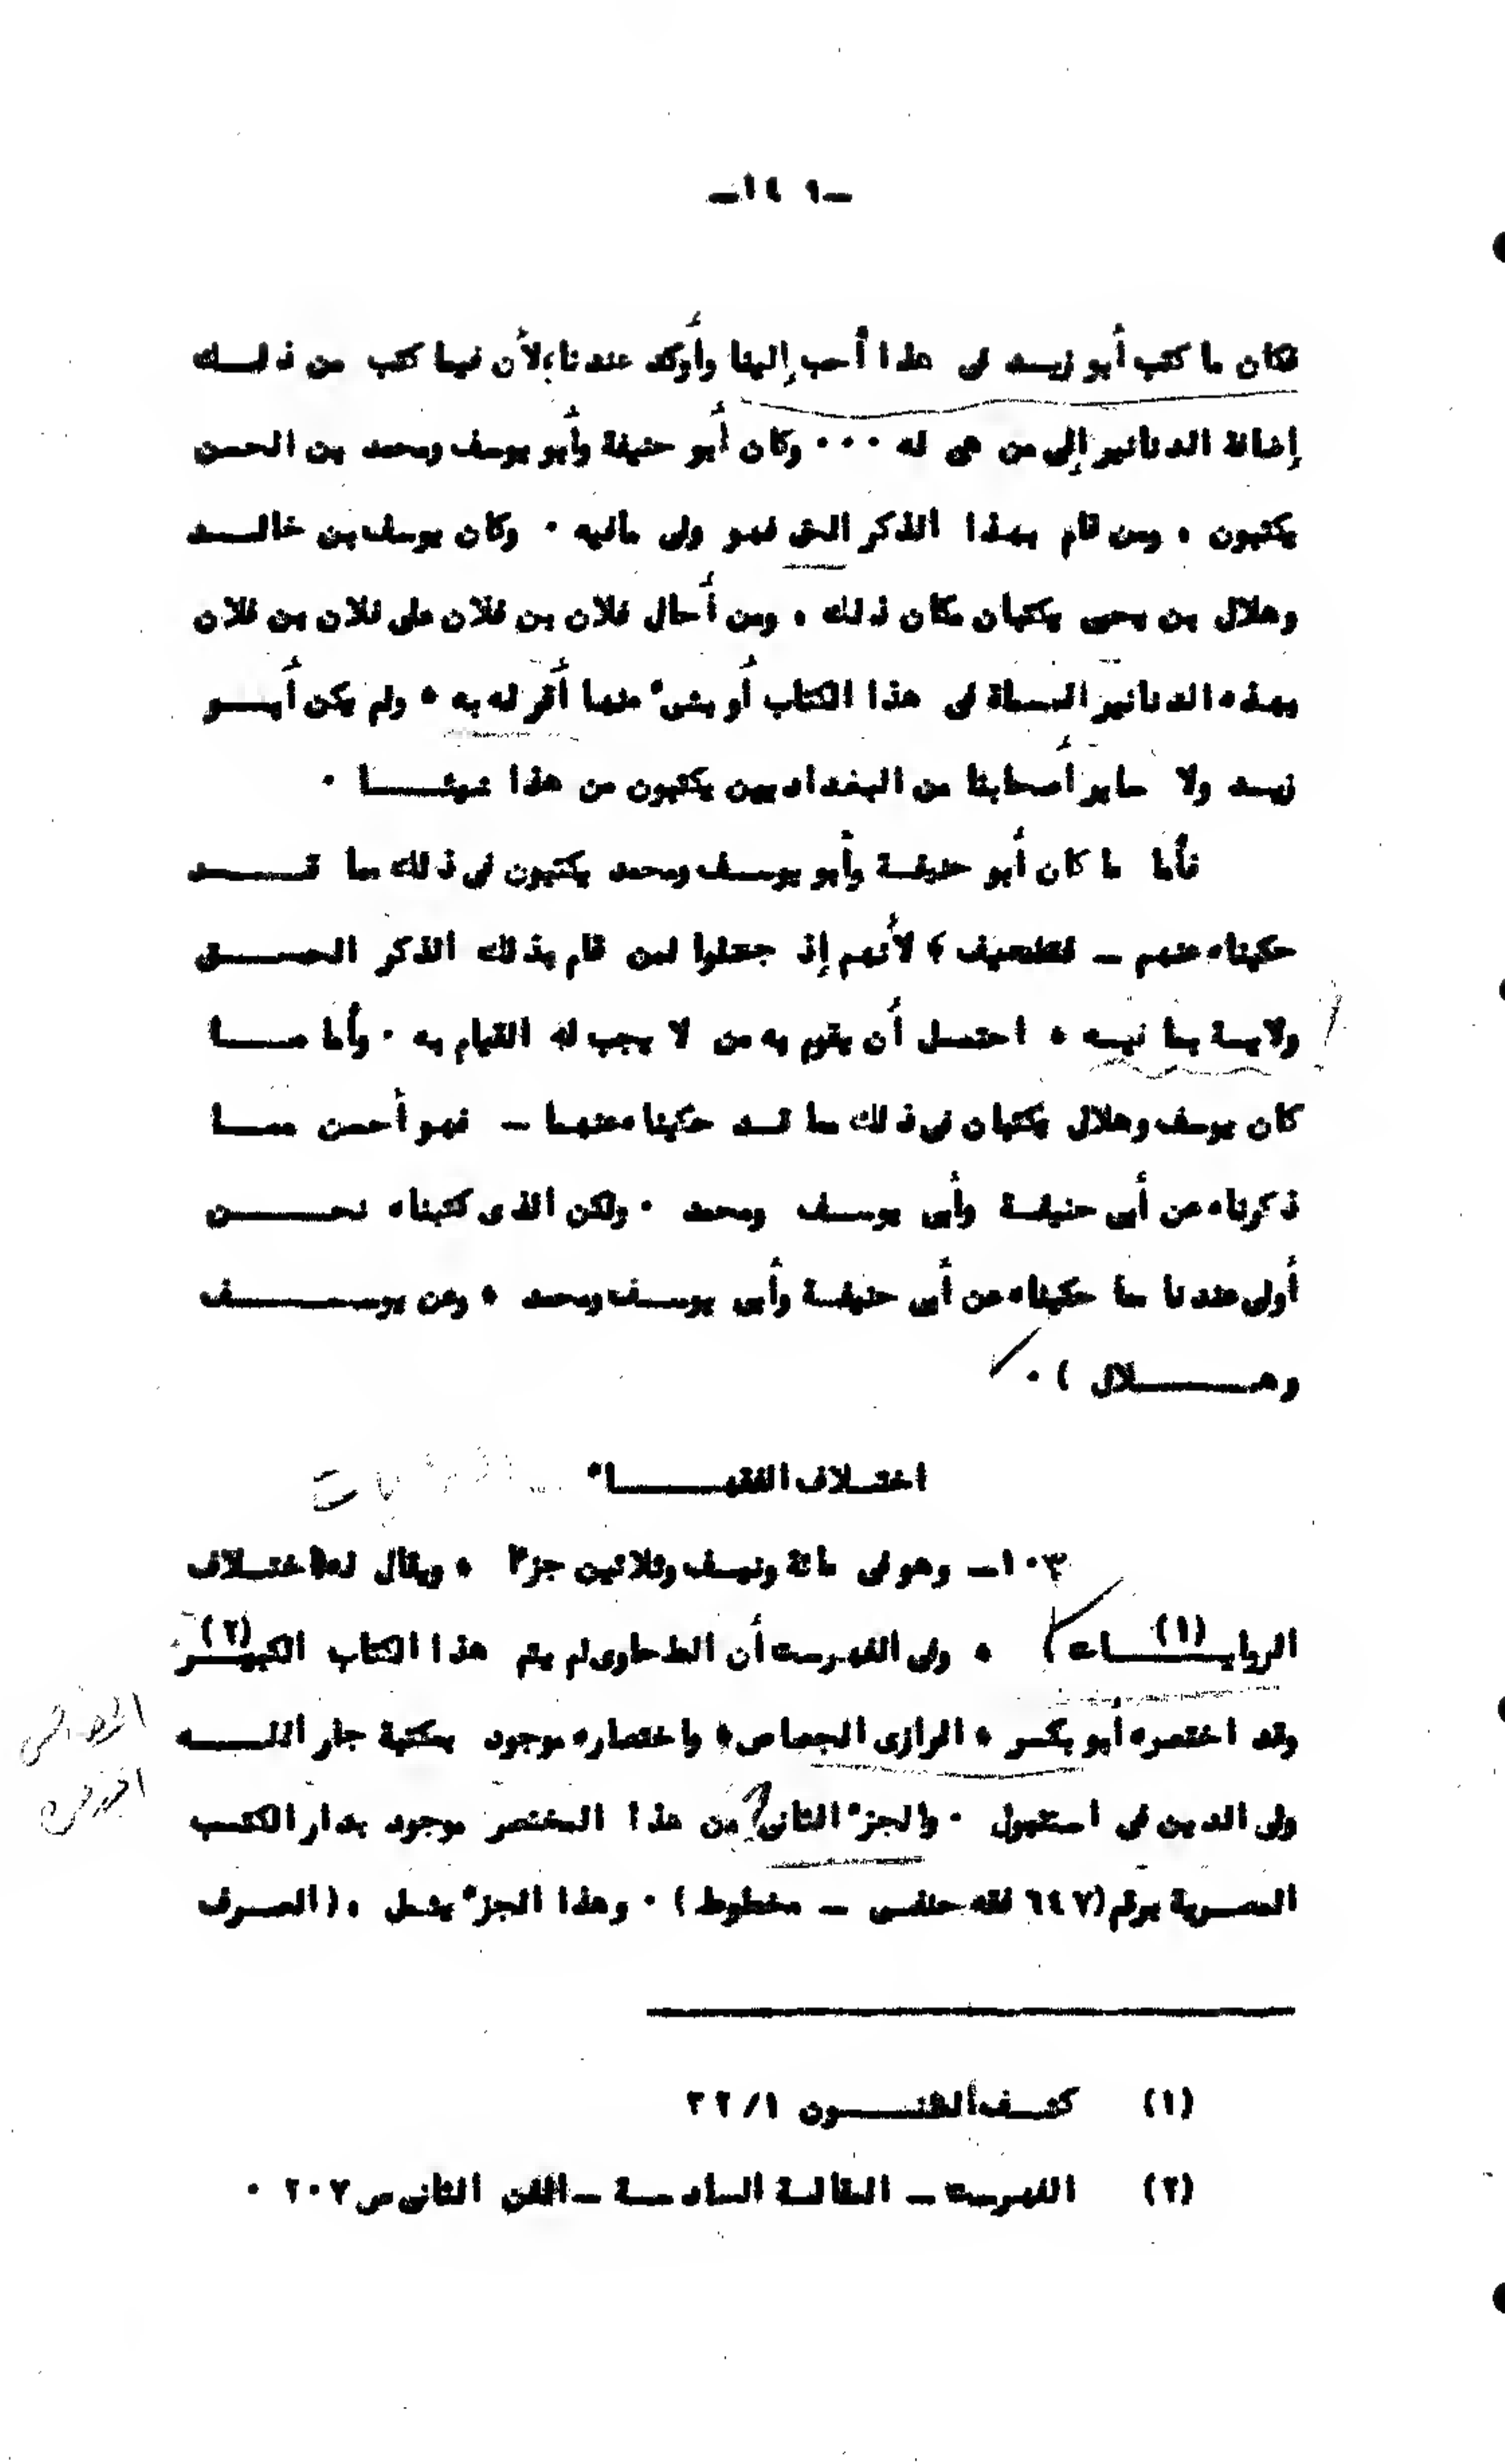 ـ١٤٩ـ
فكان ما كتب أبو زيد فى هذا أحب إلينا وأوكد عندنا؛ لأن فيما كتب من ذلك
إضافة الدنانير إلى من هى له ٠٠٠ وكان أبو حنيفة وأبو يوسف ومحمد بن الحسن
يكتبون ، ومن قام بهذا الذكر الحق فهو ولى مافيه ٠ وكان يوسف بن خالد
وهلال بن يحيى يكتبان مكان ذلك ، ومن أحال فلان بن فلان على فلان بن فلان
بهذه الدنانير المسماة فى هذا الكتاب أو بشىء منها أقر له به ، ولم يكن أبو
زيد ولا ساير أصحابنا من البغداديين يكتبون من هذا شيئا ٠
فأما ما كان أبو حنيفة وأبو يوسف ومحمد يكتبون فى ذلك مما قد
حكيناه عنهم ـ فضعيف ؛ لأنهم إذ جعلوا لمن قام بذلك الذكر الحق
ولاية بما فيه ، احتمل أن يقوم به من لا يجب له القيام به ٠ وأما ما
كان يوسف وهلال يكتبان فى ذلك مما قد حكيناه عنهما ـ فهو أحسن مما
ذكرناه عن أبى حنيفة وأبى يوسف ومحمد ٠ ولكن الذى كتبناه نحن
أولى عندنا مما حكيناه عن أبى حنيفة وأبى يوسف ومحمد ، وعن يوسف
وهلال ) ٠
اختلاف الفقهاء
١٠٣ـ وهو فى مائة ونيف وثلاثين جزءا ، ويقال له (اختلاف
الروايات) (١) ، وفى الفهرست أن الطحاوى لم يتم هذا الكتاب الكبير (٢)
وقد اختصره أبو بكر ، الرازى الجصاص ، واختصاره موجود بمكتبة جار الله
ولى الدين فى استنبول ٠ والجزء الثانى من هذا المختصر موجود بدار الكتب
المصرية برقم (٦٤٧ فقه حنفى ـ مخطوط) ٠ وهذا الجزء يشمل ، (الصرف
(١) كشف الظنون ٣٢/١
(٢) الفهرست ـ المقالة السادسة ـ الفن الثانى ص ٢٠٧ ٠